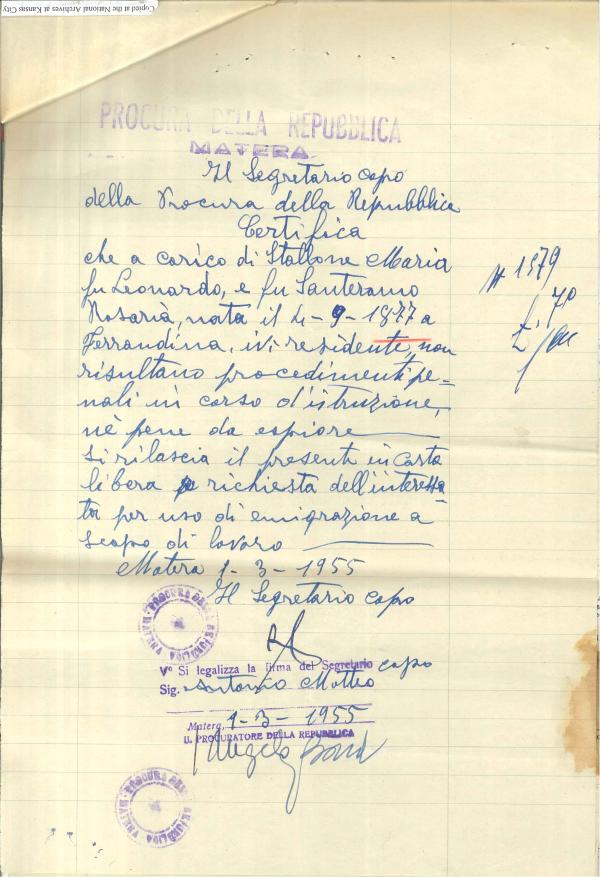 Copied at the National Archives at Kansas City
PROCURA DELLA REPUBBLICA
MATERA
Il Segretario capo
della Procura della Repubblica
Certifica
che a carico di Stallone Maria
fu Leonardo, e fu Santeramo
Rosaria, nata il 4-9-1877 a
Ferrandina, ivi residente, non
risultano procedimenti pe-
nali in corso d'istruzione,
nè pene da espiare
Si rilascia il presente in carta
libera a richiesta dell'interessa-
ta per uso di emigrazione a
scopo di lavoro
Matera 1-3-1955
Il Segretario capo
PROCURA DELLA REPUBBLICA MATERA
V° Si legalizza la firma del Segretario capo
Sig. Antonio Motteo
Matera, 1-3-1955
IL PROCURATORE DELLA REPUBBLICA
Angelo
PROCURA DELLA REPUBBLICA MATERA
N 1379